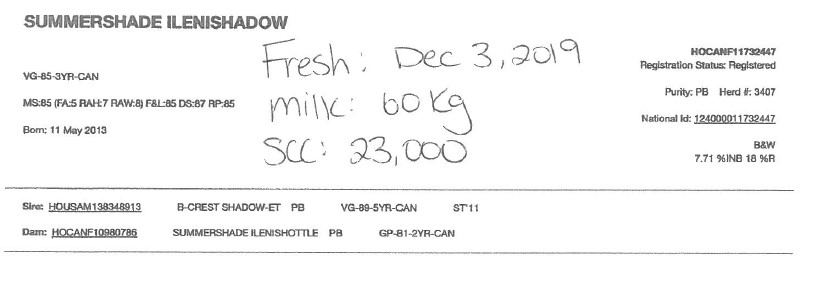 SUMMERSHADE ILENISHADOW
HOCANF11732447
Registration Status: Registered
Fresh: Dec 3, 2019
VG-85-3YR-CAN
Purity: PB Herd #: 3407
MS:85 (FA:5 RAH:7 RAW:8) F&L:85 DS:87 RP:85
Milk: 60 Kg
National Id: 124000011732447
Born: 11 May 2013
SCC: 23,000
B&W
7.71 %INB 18 %R
Sire: HOUSAM138348913 B-CREST SHADOW-ET PB VG-89-5YR-CAN ST'11
Dam: HOCANF10980786 SUMMERSHADE ILENISHOTTLE PB GP-81-2YR-CAN